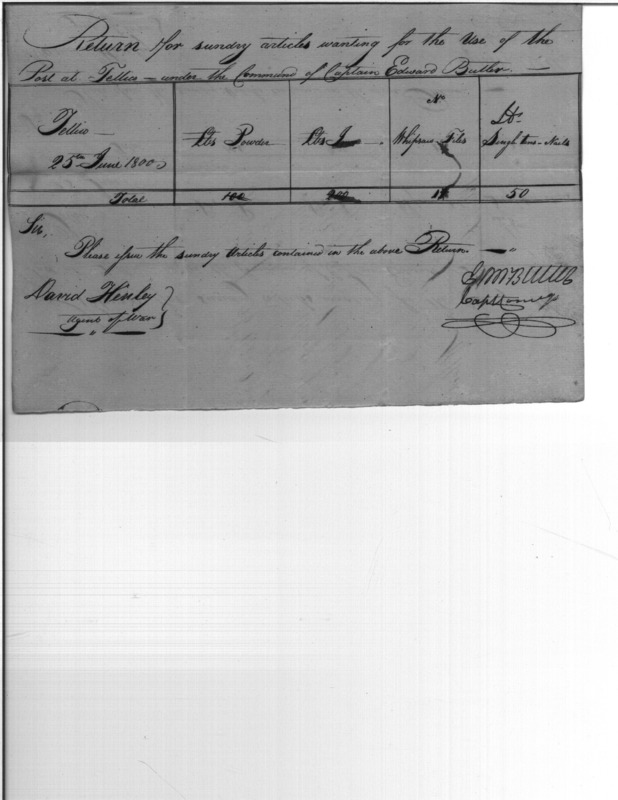 Return for sundry articles wanting for the Use of the
Post at Tellico — under the Command of Captain Edward Butler. —
Tellico —
25th June 1800
Lbs Powder
Lbs
No
Whipsaw Files
Lbs
Nails
Total
100
200
50
Sir,
Please issue the sundry Articles contained in the above Return. —
David Henley
Agent of War
Butler